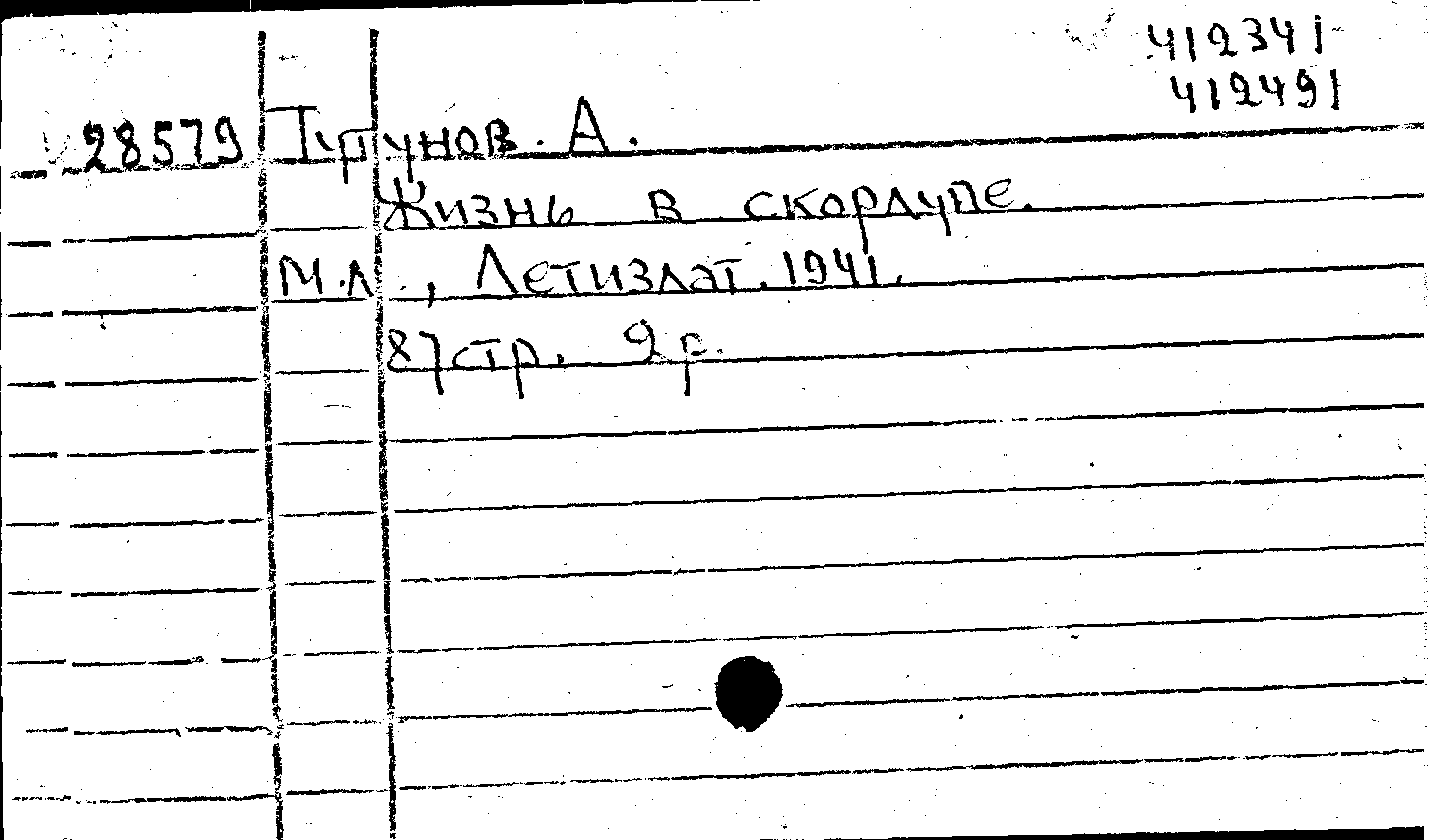 412341
412491
28579 Турунов. А.
Жизнь в скорлупе.
М.Л., Детиздат. 1941.
87 стр. 2 р.